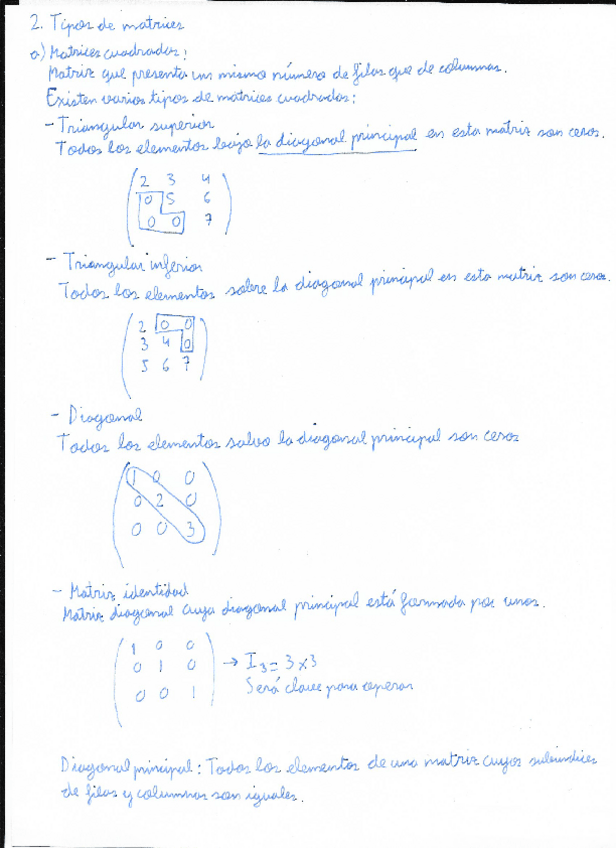 2. Tipos de matrices
a) Matrices cuadradas:
Matriz que presenta un mismo número de filas que de columnas.
Existen varios tipos de matrices cuadradas:
- Triangular superior
Todos los elementos bajo la diagonal principal en esta matriz son ceros.
2 3 4
0 5 6
0 0 7
- Triangular inferior
Todos los elementos sobre la diagonal principal en esta matriz son ceros.
2 0 0
3 4 0
5 6 7
- Diagonal
Todos los elementos salvo la diagonal principal son ceros
1 0 0
0 2 0
0 0 3
- Matriz identidad
Matriz diagonal cuya diagonal principal está formada por unos.
1 0 0
0 1 0 → I₃ = 3x3
0 0 1 Será clave para operar
Diagonal principal: Todos los elementos de una matriz cuyos subíndices
de filas y columnas son iguales.